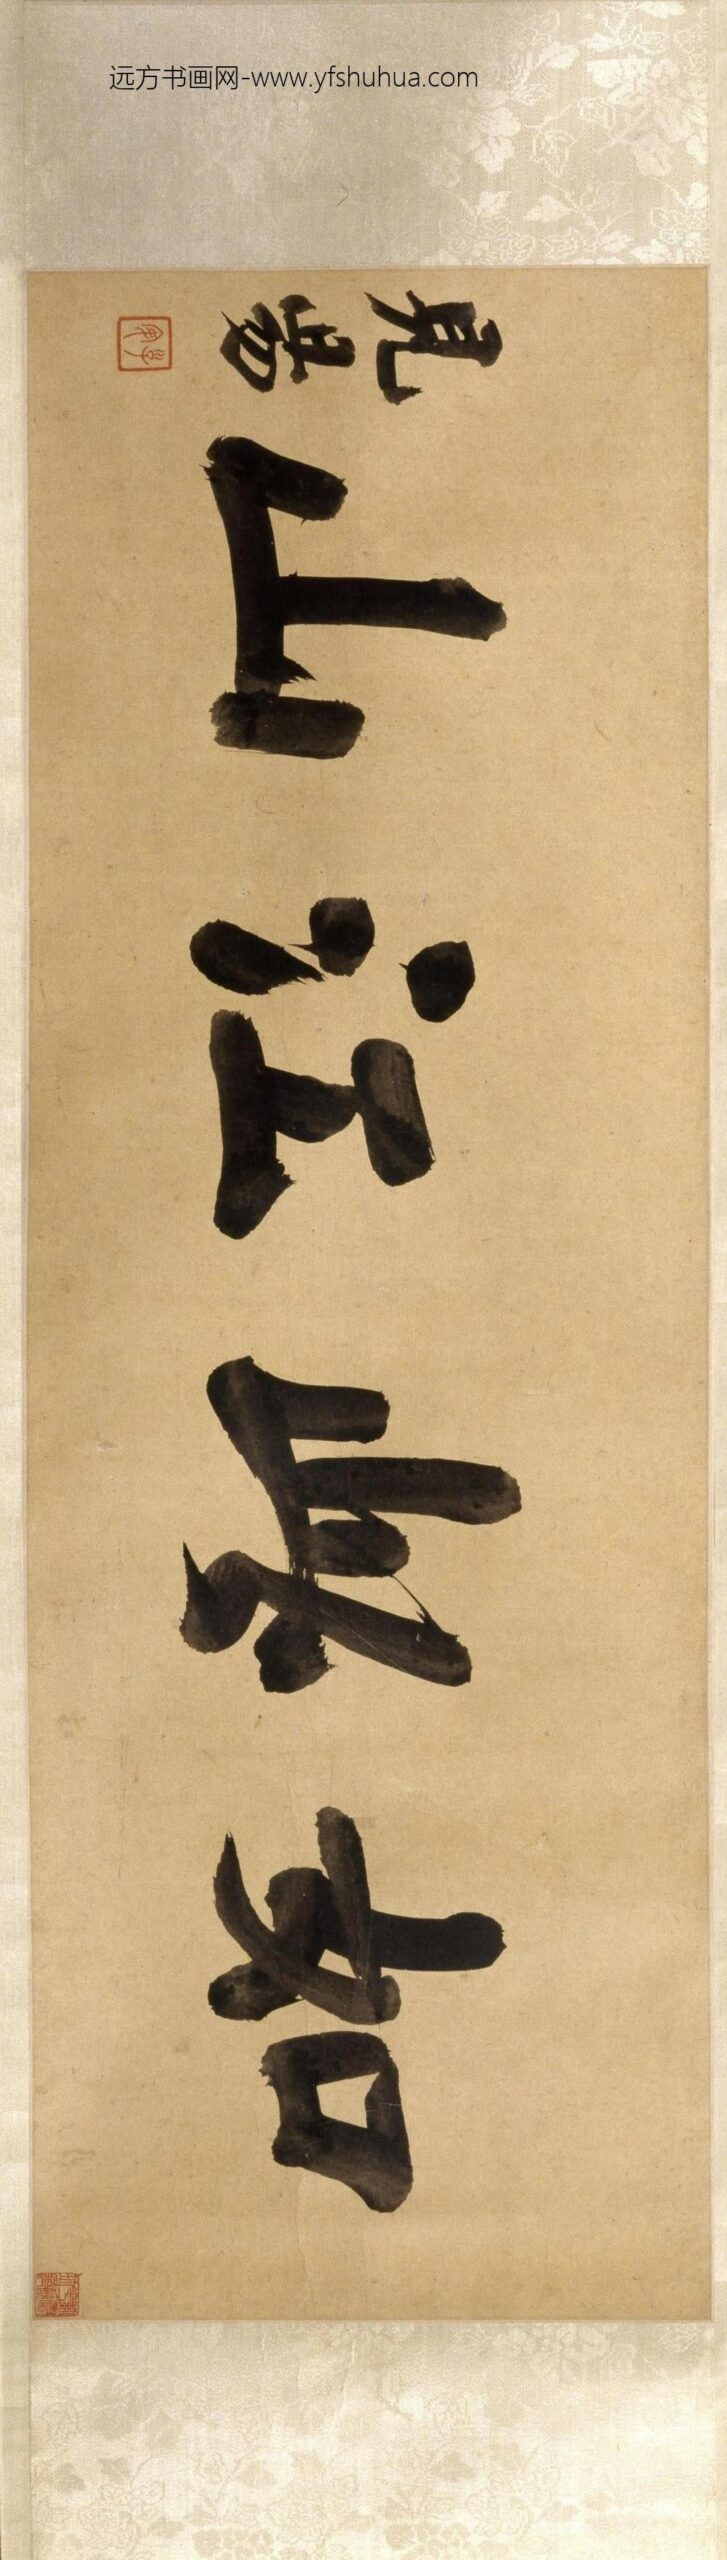 远方书画网-www.yfshuhua.com
如此江山